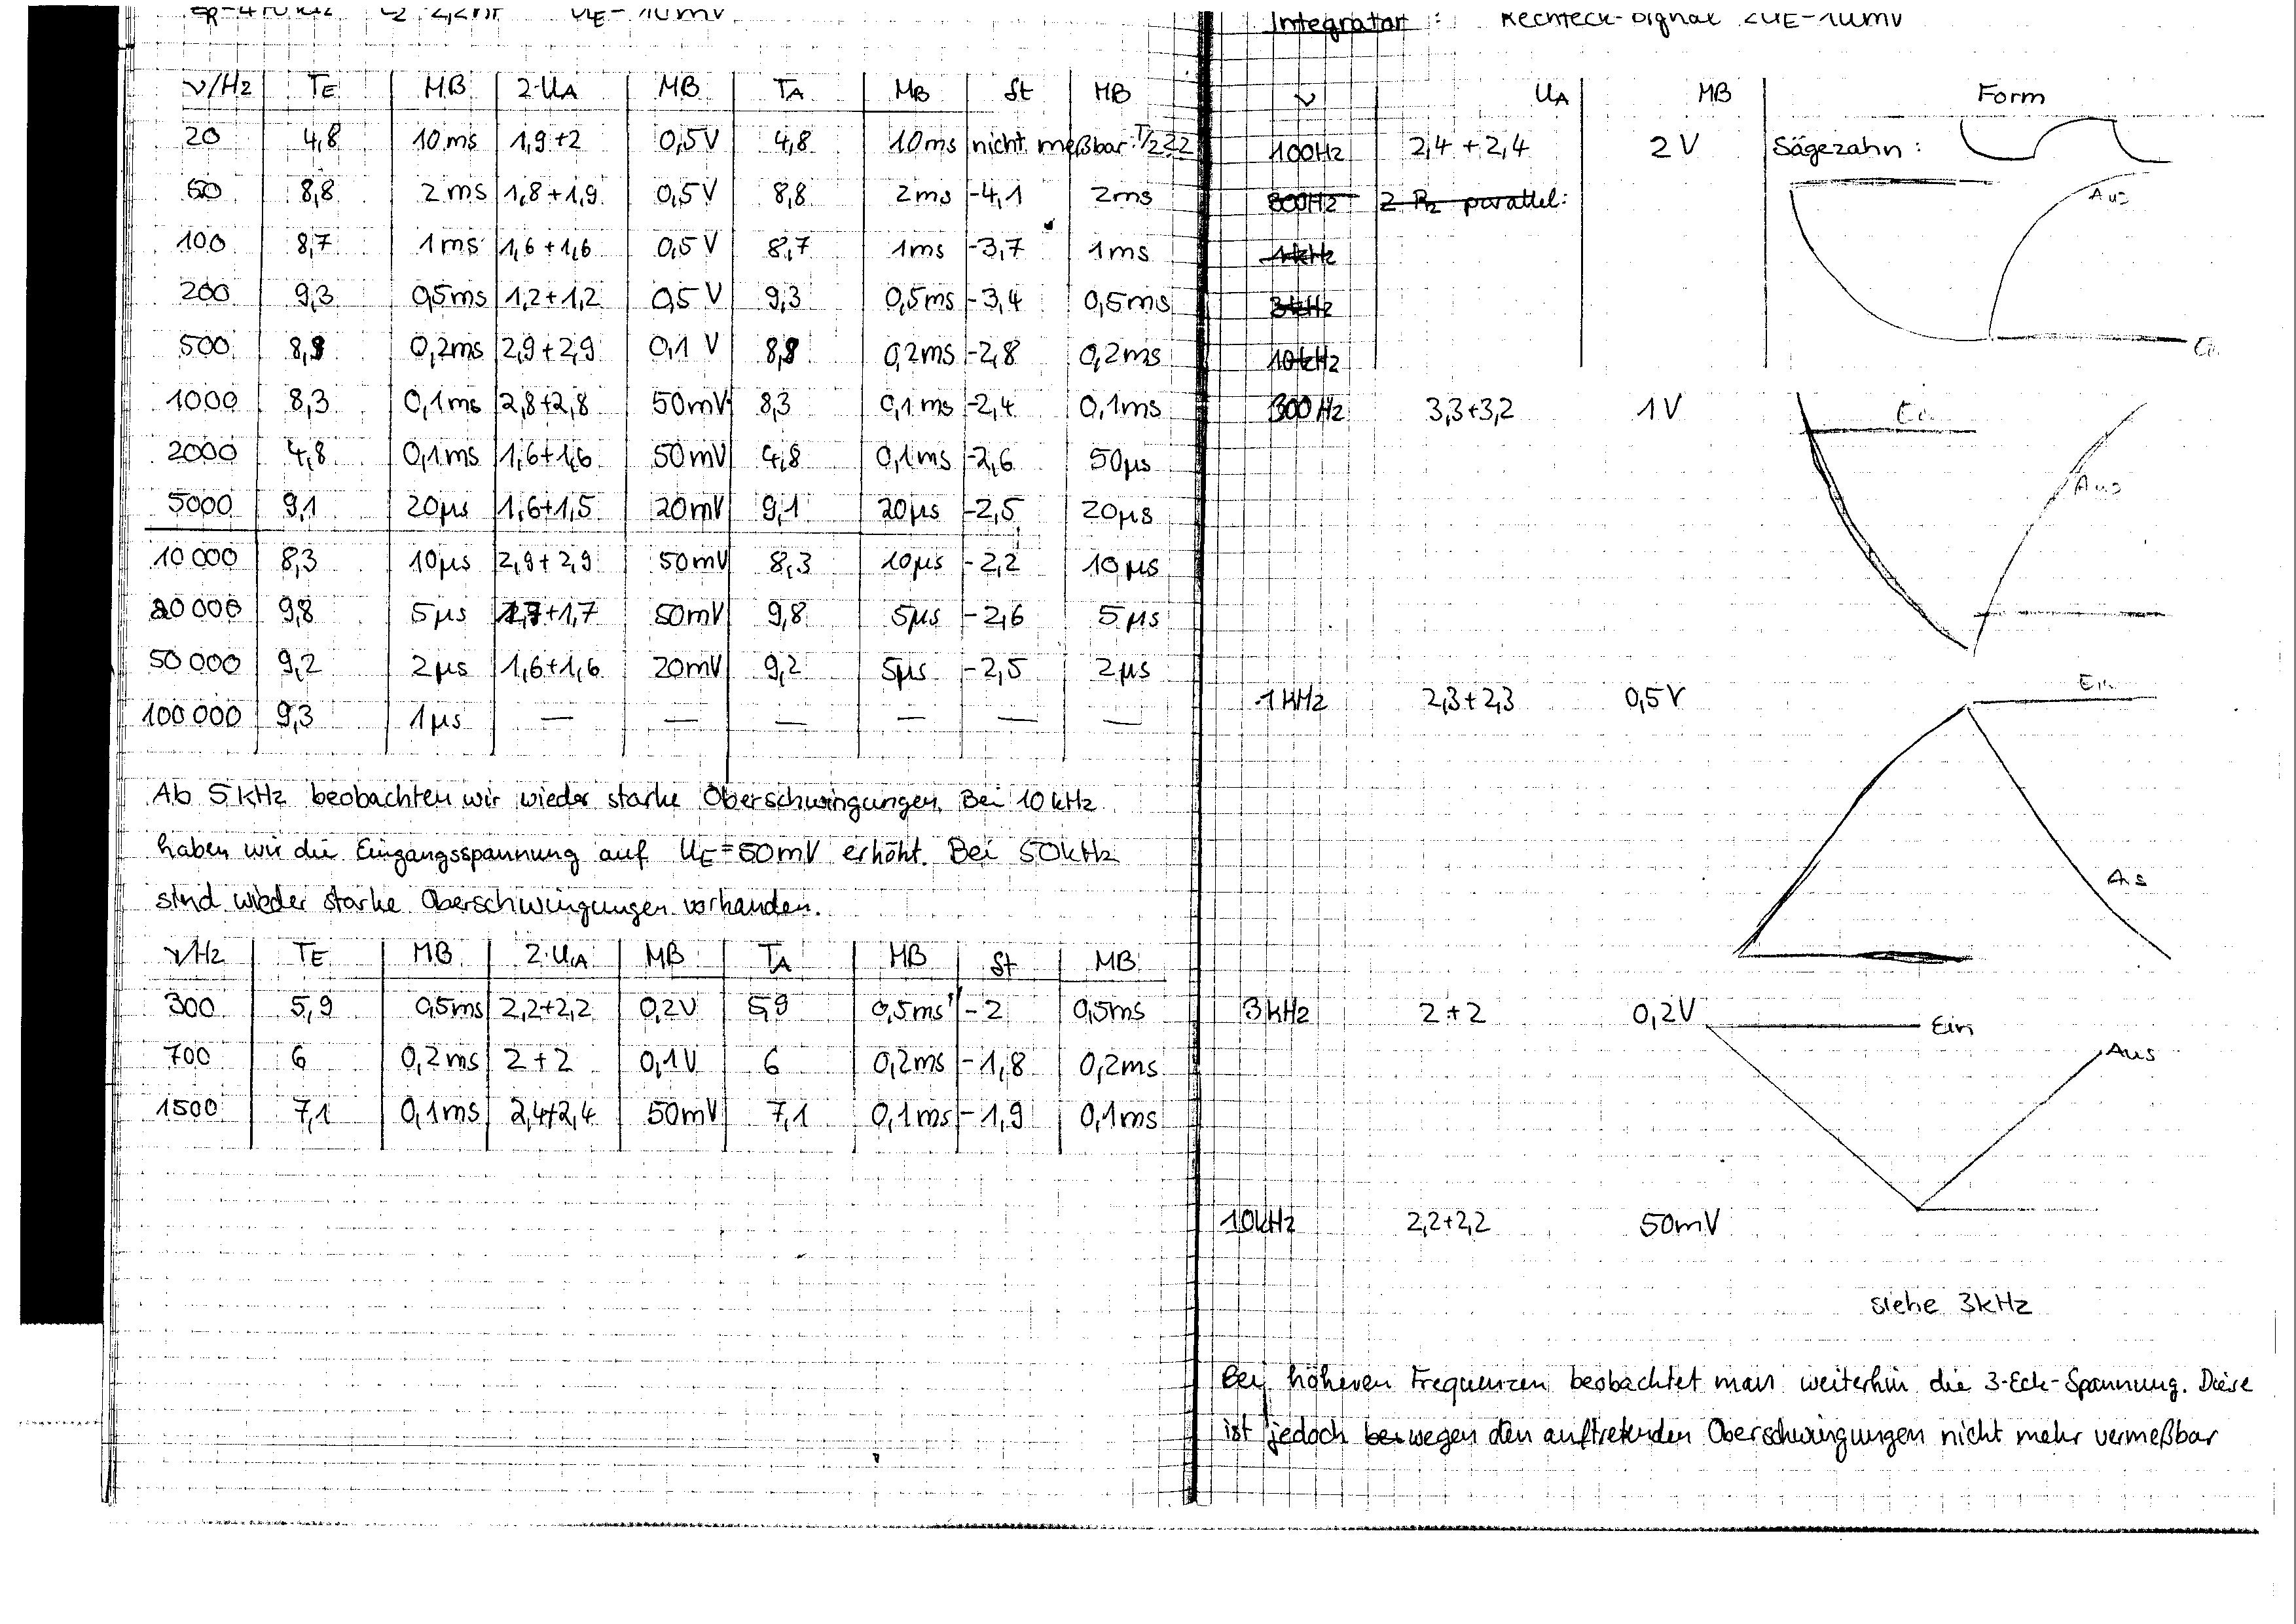 ν/Hz TE MB 2·UA MB TA MB δt MB
20 4,8 10ms 1,9+2 0,5V 4,8 10ms nicht meßbar
50 8,8 2ms 1,8+1,9 0,5V 8,8 2ms -4,1 2ms
100 8,7 1ms 1,6+1,6 0,5V 8,7 1ms -3,7 1ms
200 9,3 0,5ms 1,2+1,2 0,5V 9,3 0,5ms -3,4 0,5ms
500 8,9 0,2ms 2,9+2,9 0,1V 8,9 0,2ms -2,8 0,2ms
1000 8,3 0,1ms 2,8+2,8 50mV 8,3 0,1ms -2,4 0,1ms
2000 4,8 0,1ms 1,6+1,6 50mV 4,8 0,1ms -2,6 50µs
5000 9,1 20µs 1,6+1,5 20mV 9,1 20µs -2,5 20µs
10000 8,3 10µs 2,9+2,9 50mV 8,3 10µs -2,2 10µs
20000 9,8 5µs 1,7+1,7 50mV 9,8 5µs -2,6 5µs
50000 9,2 2µs 1,6+1,6 20mV 9,2 5µs -2,5 2µs
100000 9,3 1µs — — — — — —
Ab 5kHz beobachten wir wieder starke Oberschwingungen. Bei 10kHz
haben wir die Eingangsspannung auf UE=50mV erhöht. Bei 50kHz
sind wieder starke Oberschwingungen vorhanden.
ν/Hz TE MB 2·UA MB TA MB δt MB
300 5,9 0,5ms 2,2+2,2 0,2V 5,9 0,5ms -2 0,5ms
700 6 0,2ms 2+2 0,1V 6 0,2ms -1,8 0,2ms
1500 7,1 0,1ms 2,4+2,4 50mV 7,1 0,1ms -1,9 0,1ms
Integrator: Rechteck-Signal 2UE=10mV
ν UA MB Form
100Hz 2,4+2,4 2V Sägezahn:
800Hz 2 R2 parallel:
Aus
1kHz
3kHz
10kHz
300Hz 3,3+3,2 1V
Aus
1kHz 2,3+2,3 0,5V Ein
Aus
3kHz 2+2 0,2V Ein
Aus
10kHz 2,2+2,2 50mV
siehe 3kHz
Bei höheren Frequenzen beobachtet man weiterhin die 3-Eck-Spannung. Diese
ist jedoch wegen den auftretenden Oberschwingungen nicht mehr vermeßbar